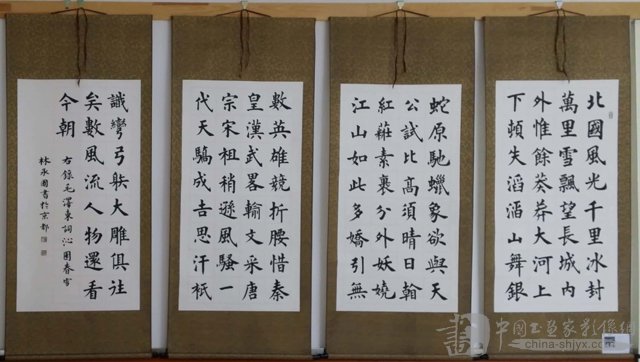 北國風光千里冰封
萬里雪飄望長城內
外惟餘莽莽大河上
下頓失滔滔山舞銀
蛇原馳蠟象欲與天
公試比高須晴日
紅素裹分外妖嬈
江山如此多嬌引無
數英雄競折腰惜秦
皇漢武畧輸文采唐
宗宋祖稍遜風騷一
代天驕成吉思汗衹
識彎弓䠶大雕俱往
矣數風流人物還看
今朝
右錄毛澤東詞沁園春雪
林承國書於京都
中國書画家影像網
china-shjyx.com